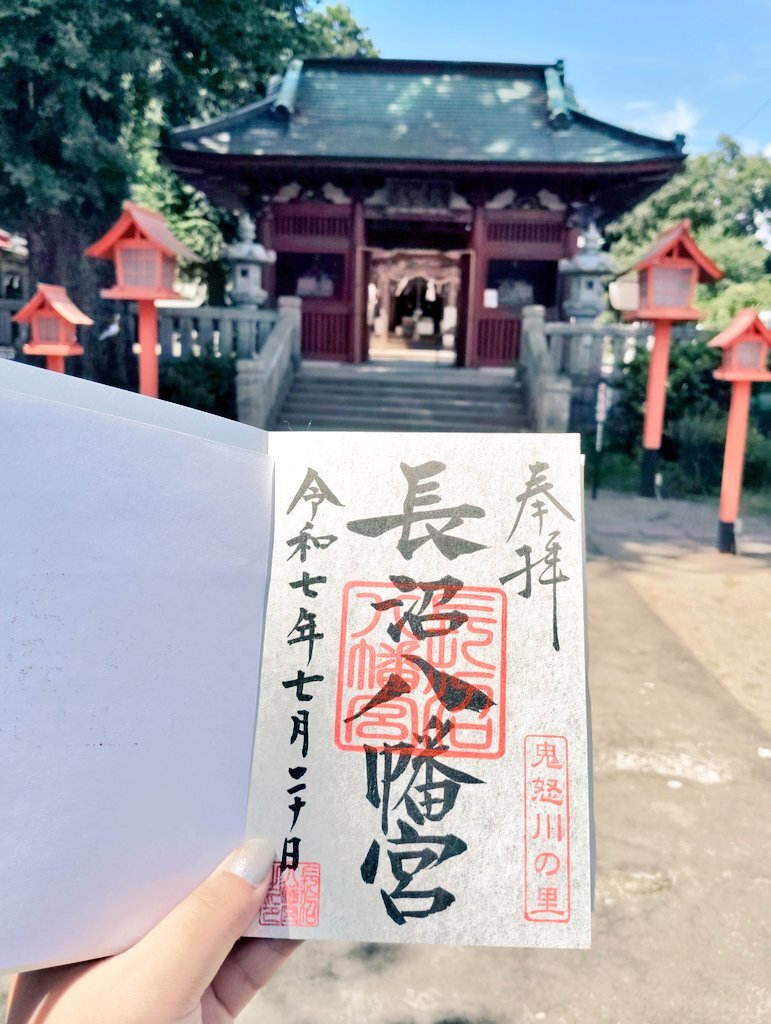 奉拝
長沼八幡宮
長沼八幡宮
鬼怒川の里
令和七年七月二十日